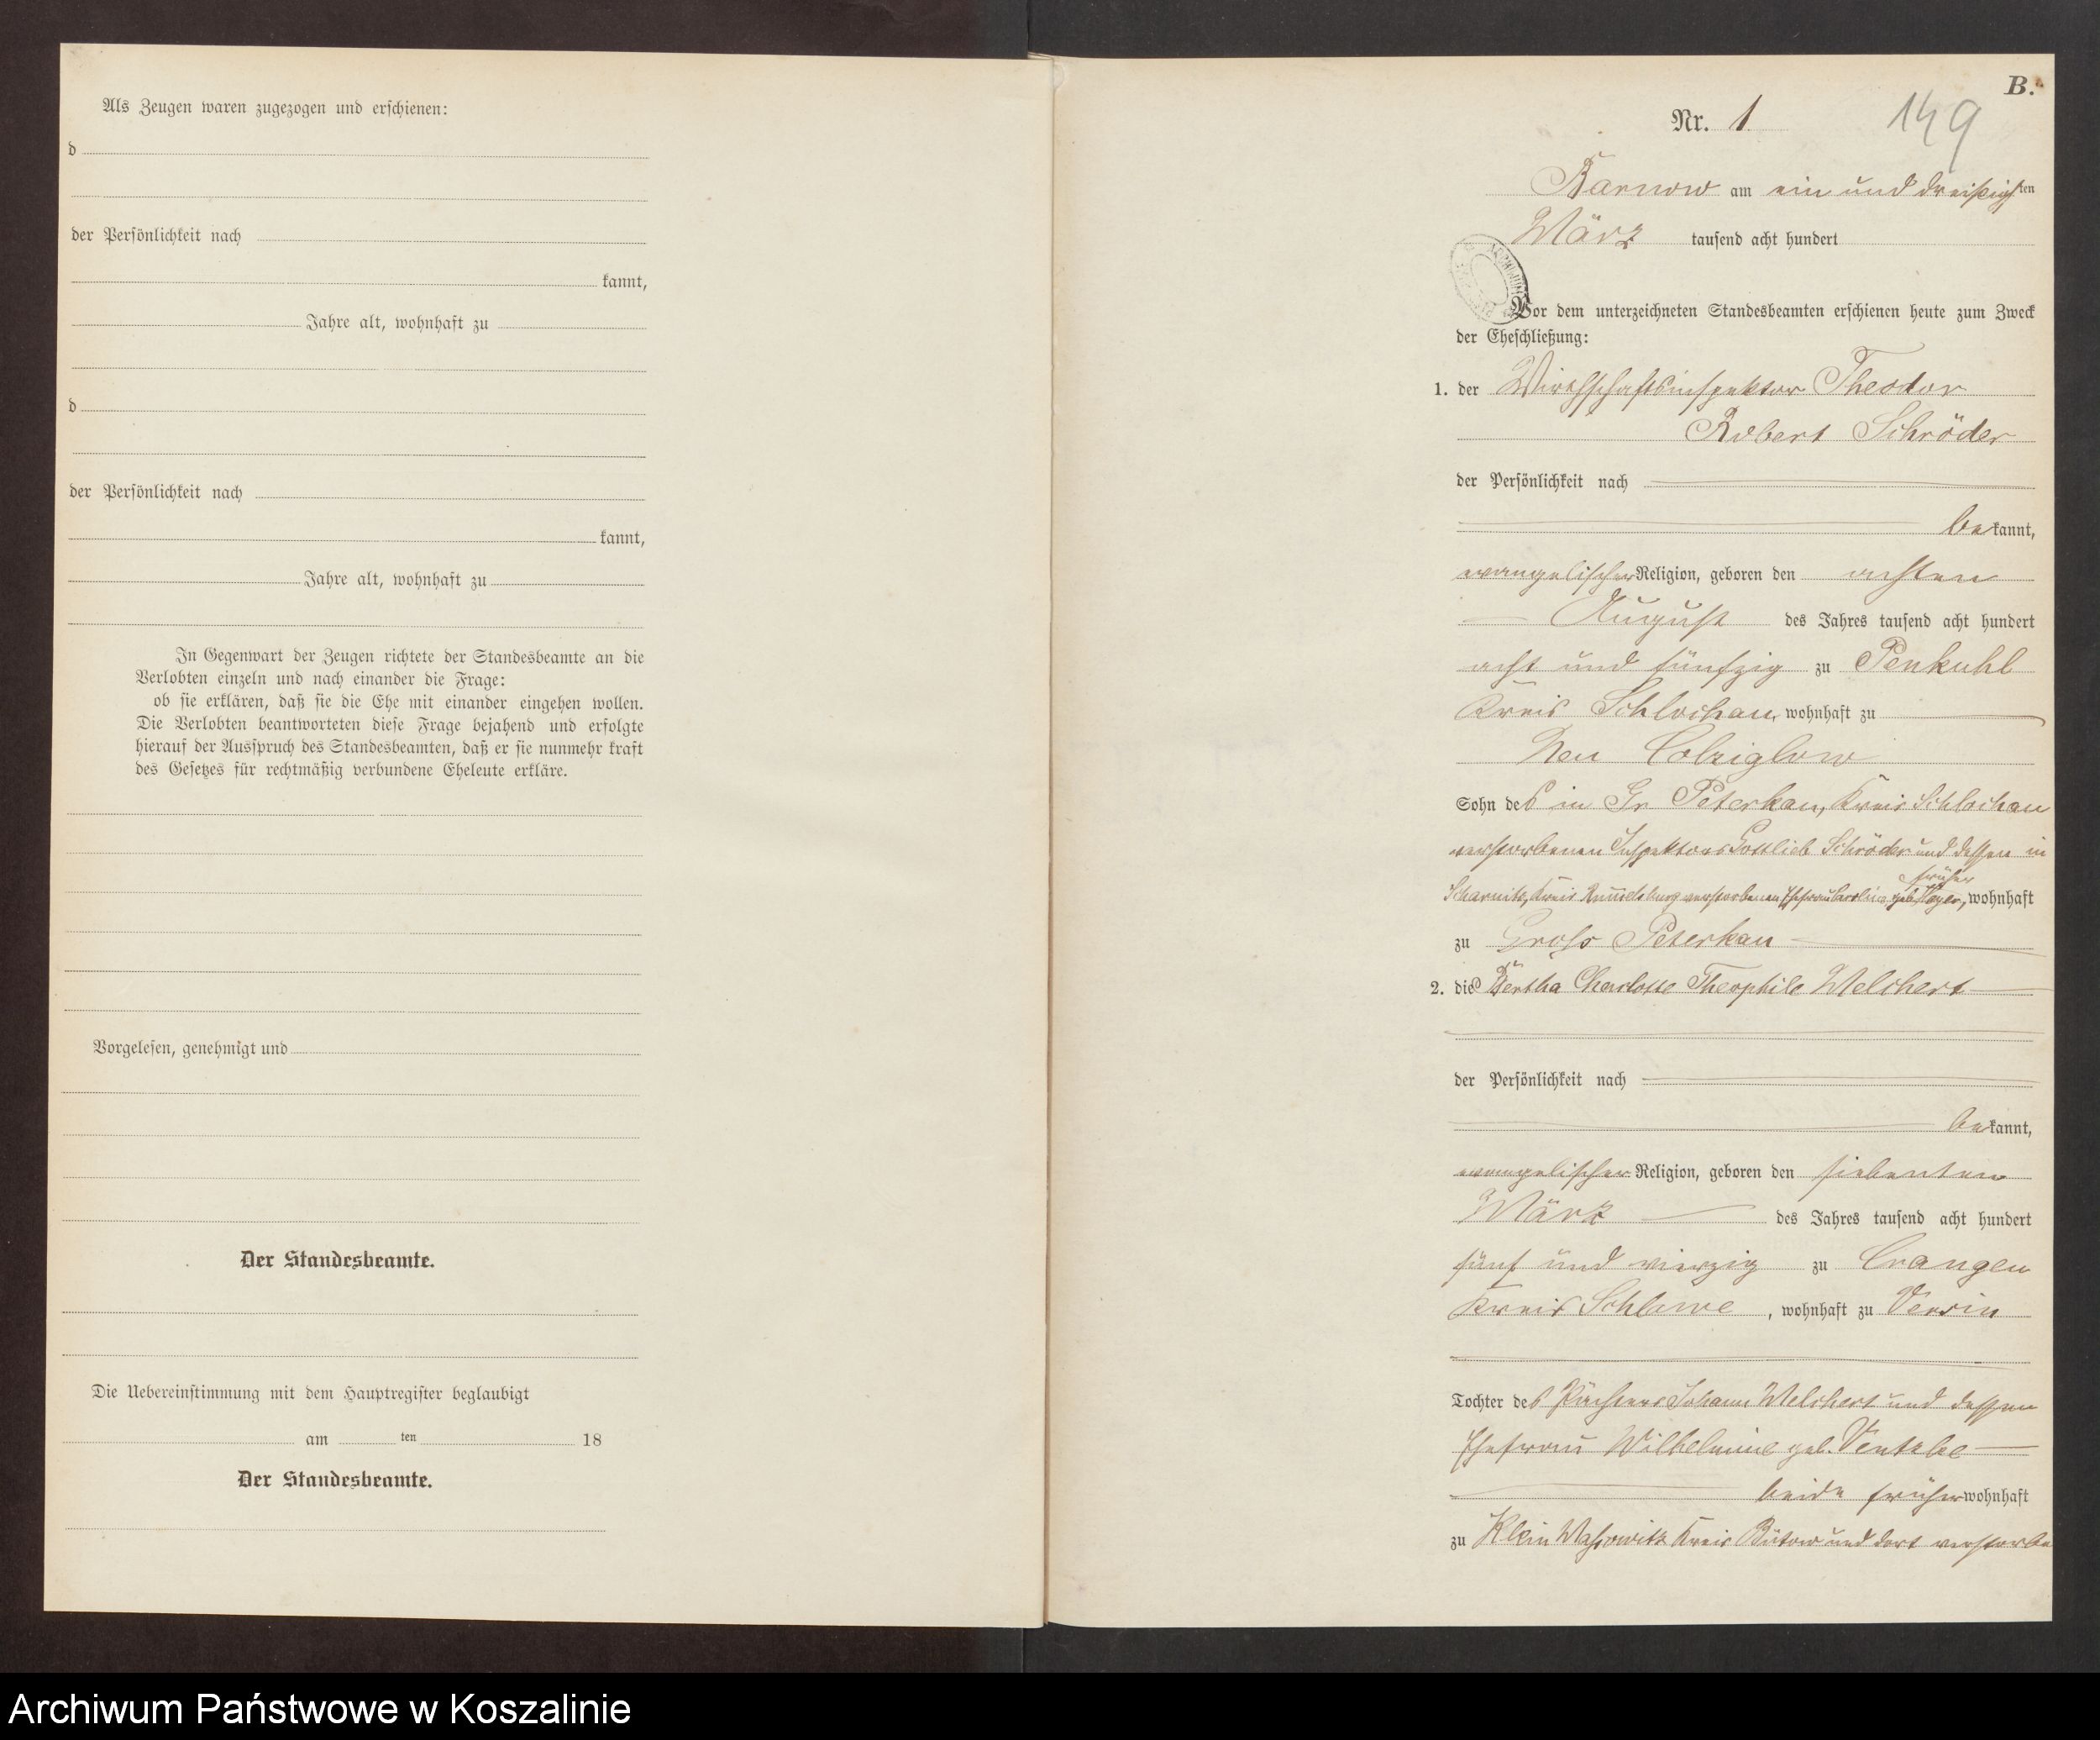 Als Zeugen waren zugezogen und erschienen:
d
der Persönlichkeit nach
kannt,
Jahre alt, wohnhaft zu
d
der Persönlichkeit nach
kannt,
Jahre alt, wohnhaft zu
In Gegenwart der Zeugen richtete der Standesbeamte an die
Verlobten einzeln und nach einander die Frage:
ob sie erklären, daß sie die Ehe mit einander eingehen wollen.
Die Verlobten beantworteten diese Frage bejahend und erfolgte
hierauf der Ausspruch des Standesbeamten, daß er sie nunmehr kraft
des Gesetzes für rechtmäßig verbundene Eheleute erkläre.
Vorgelesen, genehmigt und
Der Standesbeamte.
Die Uebereinstimmung mit dem Hauptregister beglaubigt
am ten 18
Der Standesbeamte.
B.
Nr. 1
149
Barnow am ein und dreißigsten
März tausend acht hundert
Vor dem unterzeichneten Standesbeamten erschienen heute zum Zweck
der Eheschließung:
1. der Wirthschaftsinspektor Theodor
Robert Schröder
der Persönlichkeit nach
bekannt,
evangelischer Religion, geboren den achten
August des Jahres tausend acht hundert
acht und fünfzig zu Penkuhl
Kreis Schlochau, wohnhaft zu
Neu Colziglow
Sohn des in Gr Peterkau, Kreis Schlochau
verstorbenen Inspektors Gottlieb Schröder und dessen in
früher
Scharnitz, Kreis Rummelsburg verstorbenen Ehefrau geb. wohnhaft
zu Groß Peterkau
2. die Bertha Charlotte Theophile Melchert
der Persönlichkeit nach
bekannt,
evangelischer Religion, geboren den siebenten
März des Jahres tausend acht hundert
fünf und vierzig zu Crangen
Kreis Schlawe, wohnhaft zu Versin
Tochter des Pächters Johann Melchert und dessen
Ehefrau Wilhelmine geb. Ventzke
beide früher wohnhaft
zu Klein Kreis Bütow und dort verstorbe
Archiwum Państwowe w Koszalinie